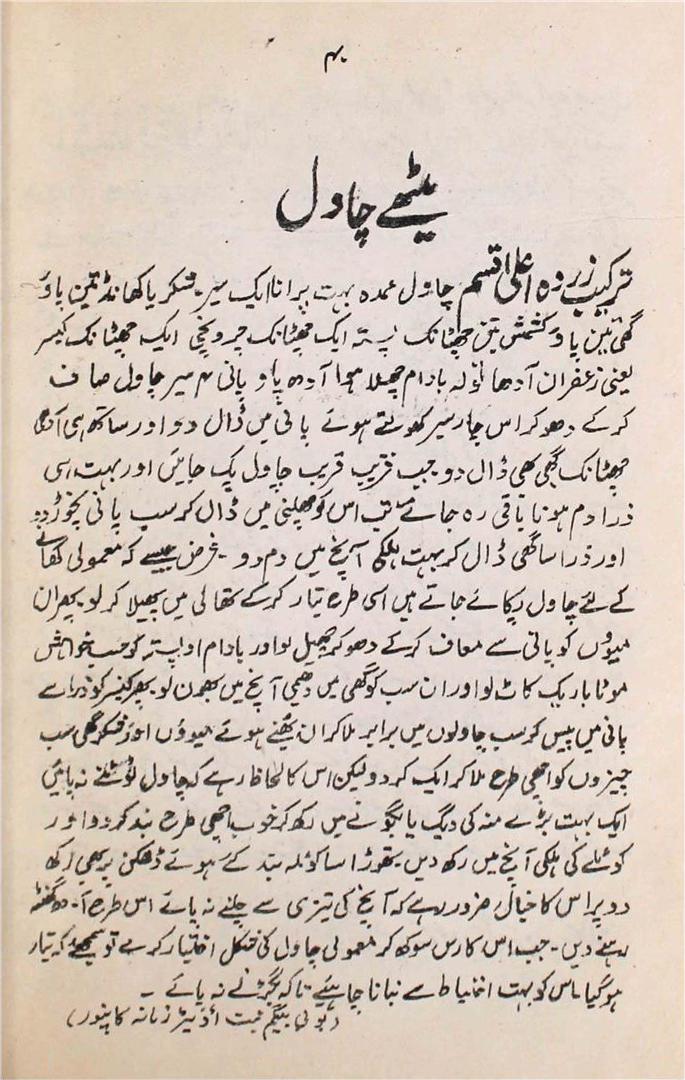 ۴۰
میٹھے چاول
ترکیب زردہ اعلیٰ قسم چاول عمدہ بہت پرانا ایک سیر۔ شکر یا کھانڈ تین پاؤ
گھی تین پاؤ کشمش تین چھٹانک پستہ ایک چھٹانک چرونجی ایک چھٹانک کیسر
یعنی زعفران آدھا تولہ بادام چھلا ہوا آدھ پاؤ پانی ۴ سیر چاول صاف
کرکے دھوکر اس چار سیر کھولتے ہوئے پانی میں ڈال دو اور ساتھ ہی آدھی
چھٹانک گھی بھی ڈال دو جب قریب قریب چاول پک جائیں اور بہت اسی
ذرا دم ہونا باقی رہ جائے تب اس کو چھلنی میں ڈال کر سب پانی نچوڑ دو
اور ذرا سا گھی ڈال کر بہت ہلکی آنچ میں دم دو۔ غرض جیسے کہ معمولی کھانے
کے لئے چاول پکائے جاتے ہیں اسی طرح تیار کرکے تھالی میں پھیلا کر لو پھر ان
میوؤں کو پانی سے معاف کرکے دھوکر چھیل لو اور بادام اور پستہ کو حسب خواہش
موٹا باریک کاٹ لو اور ان سب کو گھی میں دھیمی آنچ میں بھون لو پھر کیسر کو ذرا سے
پانی میں پیس کر سب چاولوں میں برابر ملا کر ان بھنے ہوئے میوؤں اور شکر گھی سب
چیزوں کو اچھی طرح ملا کر ایک کردو لیکن اس کا لحاظ رہے کہ چاول ٹوٹنے نہ پائیں
ایک بہت بڑے منہ کی دیگ یا بھگونے میں رکھ کر خوب اچھی طرح بند کردو اور
کوئلے کی ہلکی آنچ میں رکھ دیں۔ تھوڑا سا کوئلہ بند کئے ہوئے ڈھکن پر بھی رکھ
دو پر اس کا خیال ضرور رہے کہ آنچ کی تیزی سے جلنے نہ پائے اس طرح آدھ گھنٹہ
رہنے دیں۔ جب اس کا رس سوکھ کر معمولی چاول کی شکل اختیار کرے تو سمجھے کہ تیار
ہوگیا۔ اس کو بہت احتیاط سے بنانا چاہیئے تاکہ بگڑنے نہ پائے۔
(بیگم بنت اڈیٹر زمانہ کانپور)